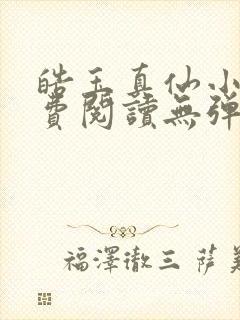 皓玉真仙小
費閱讀無彈
福澤徹三 薩美